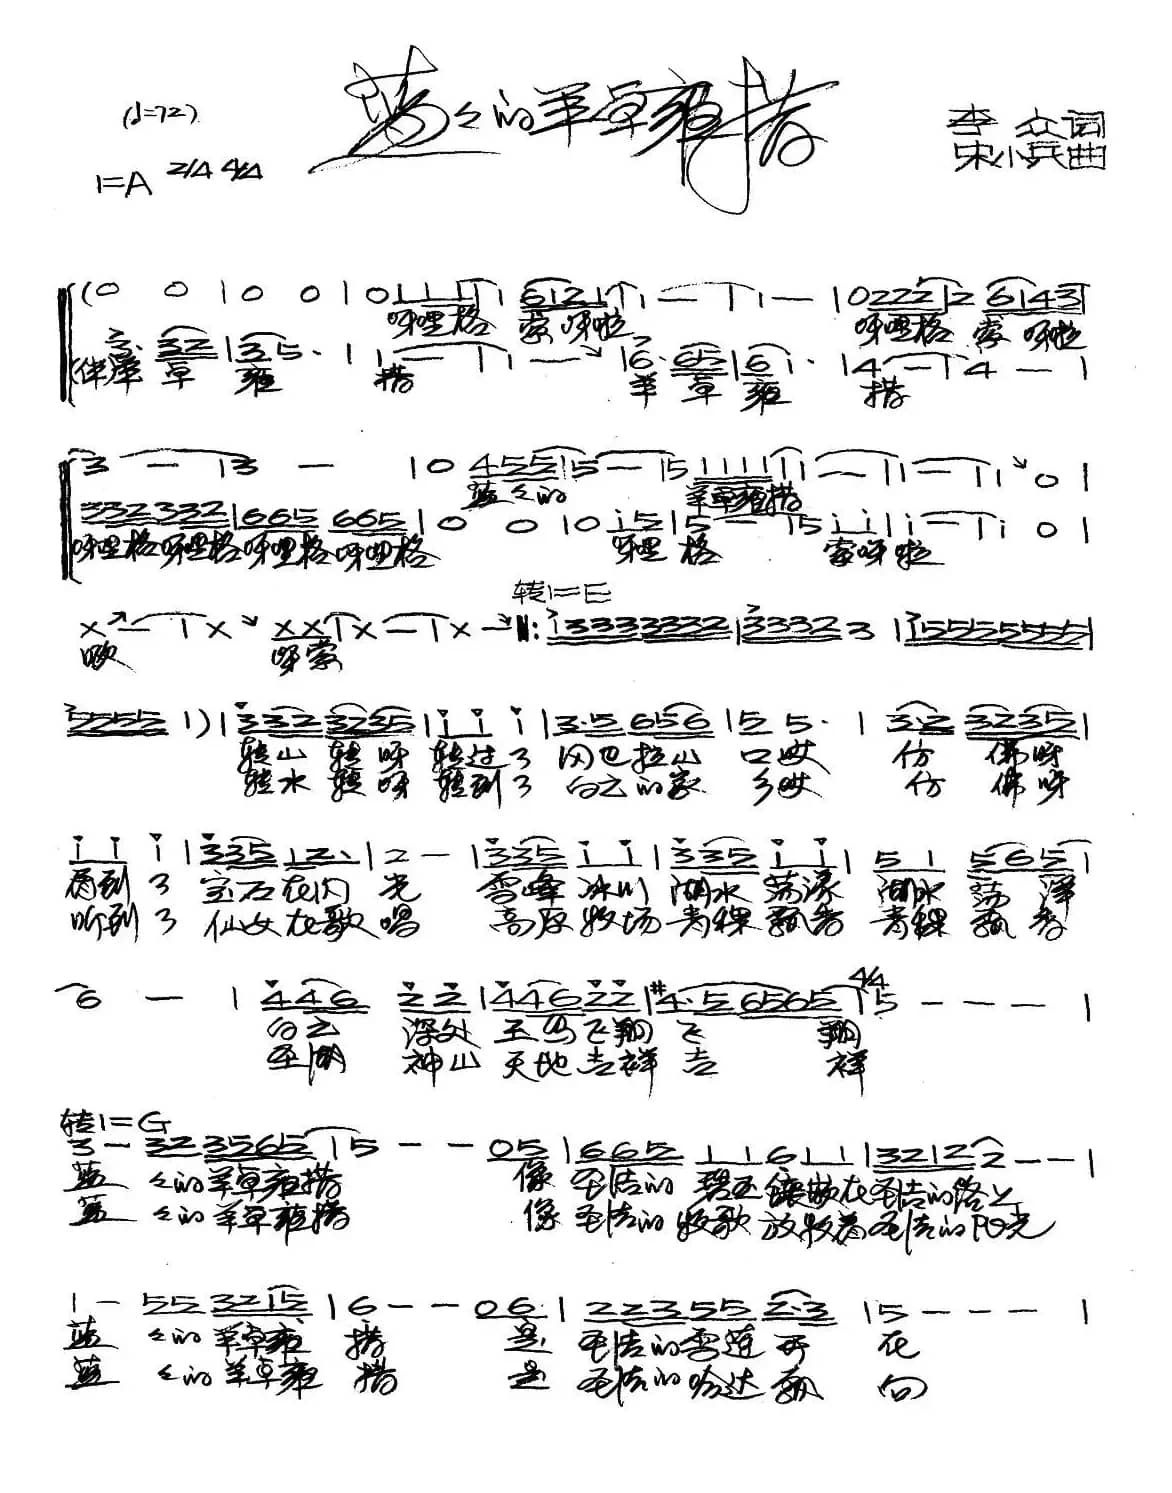 (♩=72)
蓝々的羊卓雍措
1=A 2/4 4/4
李众词
宋小兵曲
(0 0 | 0 0 | 0 1 1 1 | 1 6 1 2 1 | 1 — | 1 — | 0 2 2 2 | 2 6 1 4 3 |
呀哩格 索呀啦 呀哩格 索呀啦
3· 32 | 35· | 1 — | 1 — | 6· 65 | 61· | 4 — | 4 — |
(伴羊卓雍措 羊卓雍措
3 — | 3 — | 0 4 5 5 | 5 — | 5 1 1 1 1 | 1 — | 1 — | 1 0 |
蓝々的 羊卓雍措
332332 | 665 665 | 0 0 | 0 i5 | 5 — | 5 i i | i — | i 0 |
呀哩格呀哩格呀哩格呀哩格 呀哩格 索呀啦
转1=E
X — | X X X | X — | X — ‖: i3333332 | 33323 | i5555555 |
噢 呀索
5555 1) | 332 3235 | i i i | 3·5 656 | 5 5· | 3·2 3235 |
转山转呀转过了冈巴拉山口哎 仿佛呀
转水转呀转到了白云的家乡哎 仿佛呀
i i i | 335 12· | 2 — | 335 i i | 335 i i | 5 1 565 |
看到了宝石在闪光 雪峰冰川湖水荡漾湖水荡漾
听到了仙女在歌唱 高原牧场青稞飘香青稞飘香
6 — | 446 2 2 | 446 22 | #4·5 6565 | 4/4 5 — — — |
白云深处玉鸟飞翔飞翔
圣湖神山天地吉祥吉祥
转1=G
3 — 32 3565 | 5 — — 05 | 665 11611 | 3212 2 — — |
蓝々的羊卓雍措 像圣洁的碧玉镶嵌在圣洁的路上
蓝々的羊卓雍措 像圣洁的牧歌放牧着圣洁的阳光
1 — 55 3215 | 6 — — 06· | 22355 2·3 | 5 — — — |
蓝々的羊卓雍措 是圣洁的雪莲开在
蓝々的羊卓雍措 是圣洁的哈达飘向